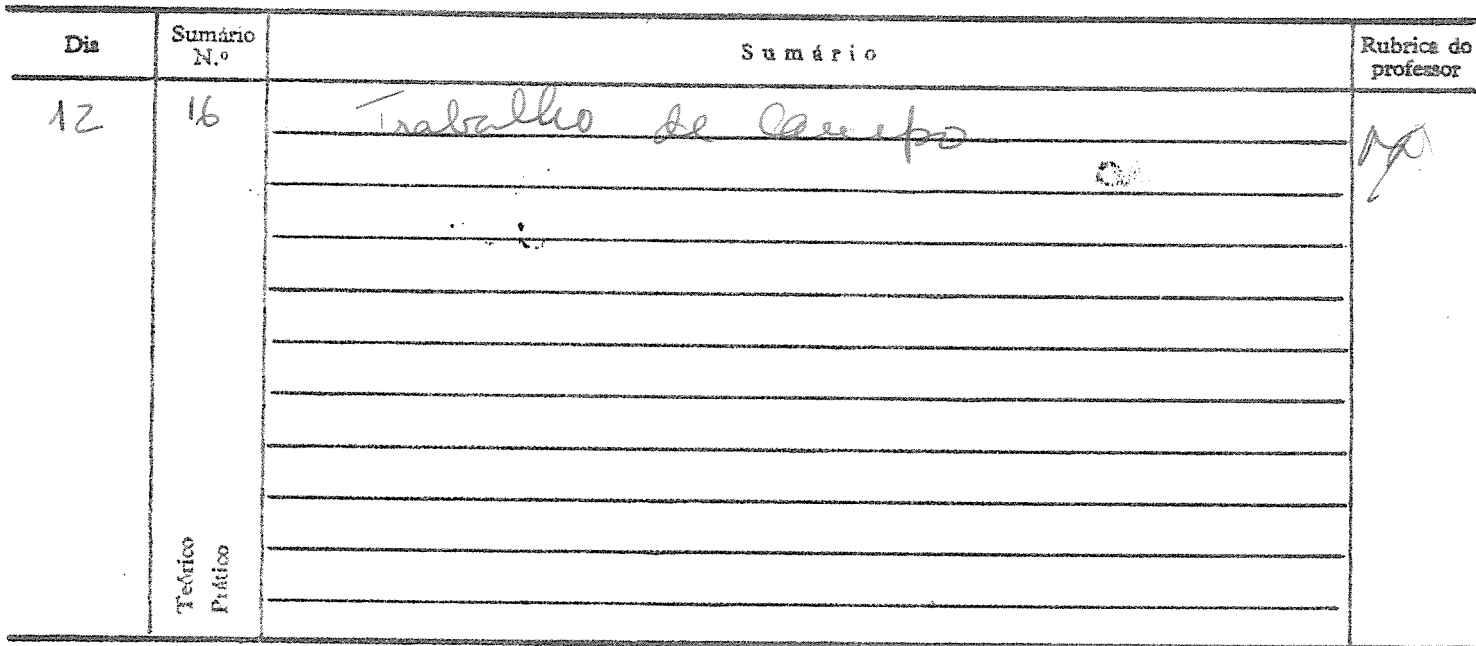 Dia Sumário N.º Sumário Rubrica do professor
12 16 Trabalho de Campo
Teórico
Prático